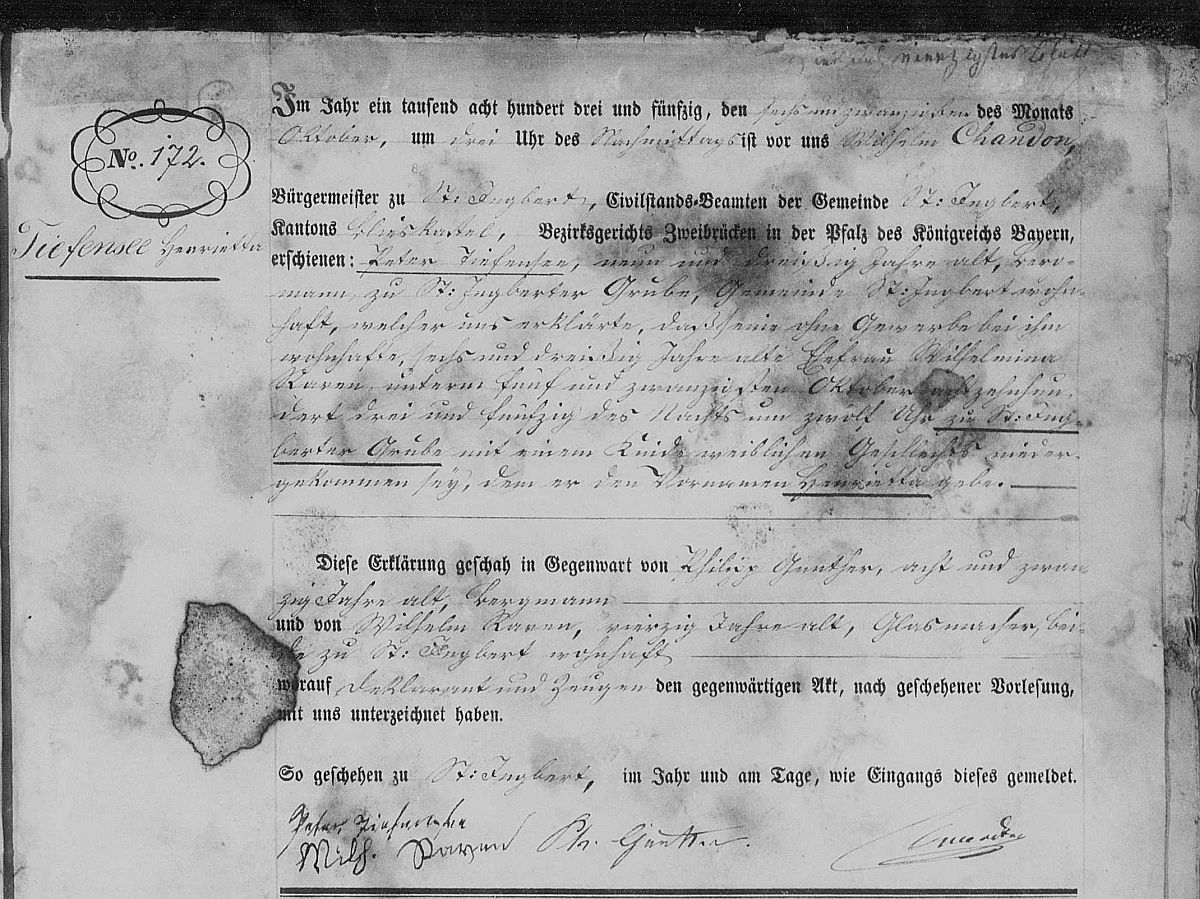 vierzigstes Blatt
Im Jahr ein tausend acht hundert drei und fünfzig, den sechs und zwanzigsten des Monats
Oktober, um drei Uhr des Nachmittags ist vor uns Wilhelm Chandon,
No. 172.
Bürgermeister zu St: Ingbert, Civilstands-Beamten der Gemeinde St: Ingbert,
Tiefensee Henrietta
Kantons Blieskastel, Bezirksgerichts Zweibrücken in der Pfalz des Königreichs Bayern,
erschienen: Peter Tiefensee, neun und dreißig Jahre alt, Berg-
mann, zu St: Ingberter Grube, Gemeinde St: Ingbert wohn-
haft, welcher uns erklärte, daß seine ohne Gewerbe bei ihm
wohnhafte, sechs und dreißig Jahre alte Ehefrau Wilhelmina
Raven, unterm fünf und zwanzigsten Oktober achtzehnhun-
dert drei und fünfzig des Nachts um zwölf Uhr zu St: Ing-
berter Grube mit einem Kinde weiblichen Geschlechts nieder-
gekommen sey, dem er den Vornamen Henrietta gebe.
Diese Erklärung geschah in Gegenwart von Philipp Gunther, acht und zwan-
zig Jahre alt, Bergmann
und von Wilhelm Raven, vierzig Jahre alt, Glasmacher, bei-
de zu St: Ingbert wohnhaft
worauf Deklarant und Zeugen den gegenwärtigen Akt, nach geschehener Vorlesung,
mit uns unterzeichnet haben.
So geschehen zu St: Ingbert, im Jahr und am Tage, wie Eingangs dieses gemeldet.
Peter Tiefensee
Wilh. Raven Ph. Gunther